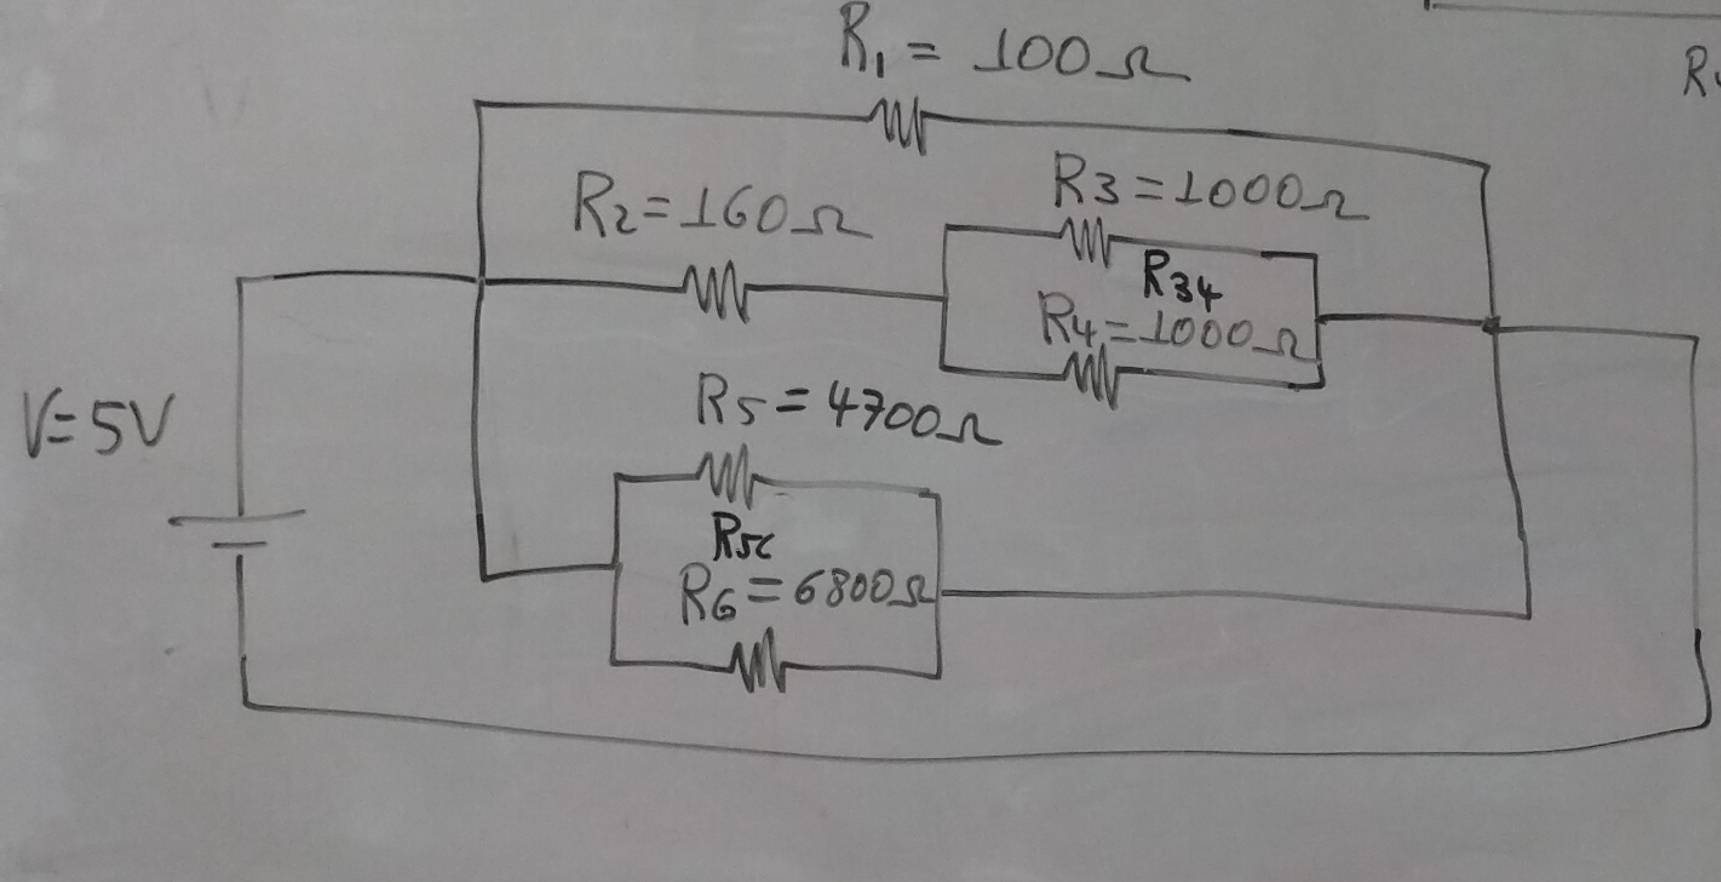 R₁ = 100Ω
R₂=160Ω
R3=1000Ω
R34
R4=1000Ω
V=5V
R5=4700Ω
R6=6800Ω